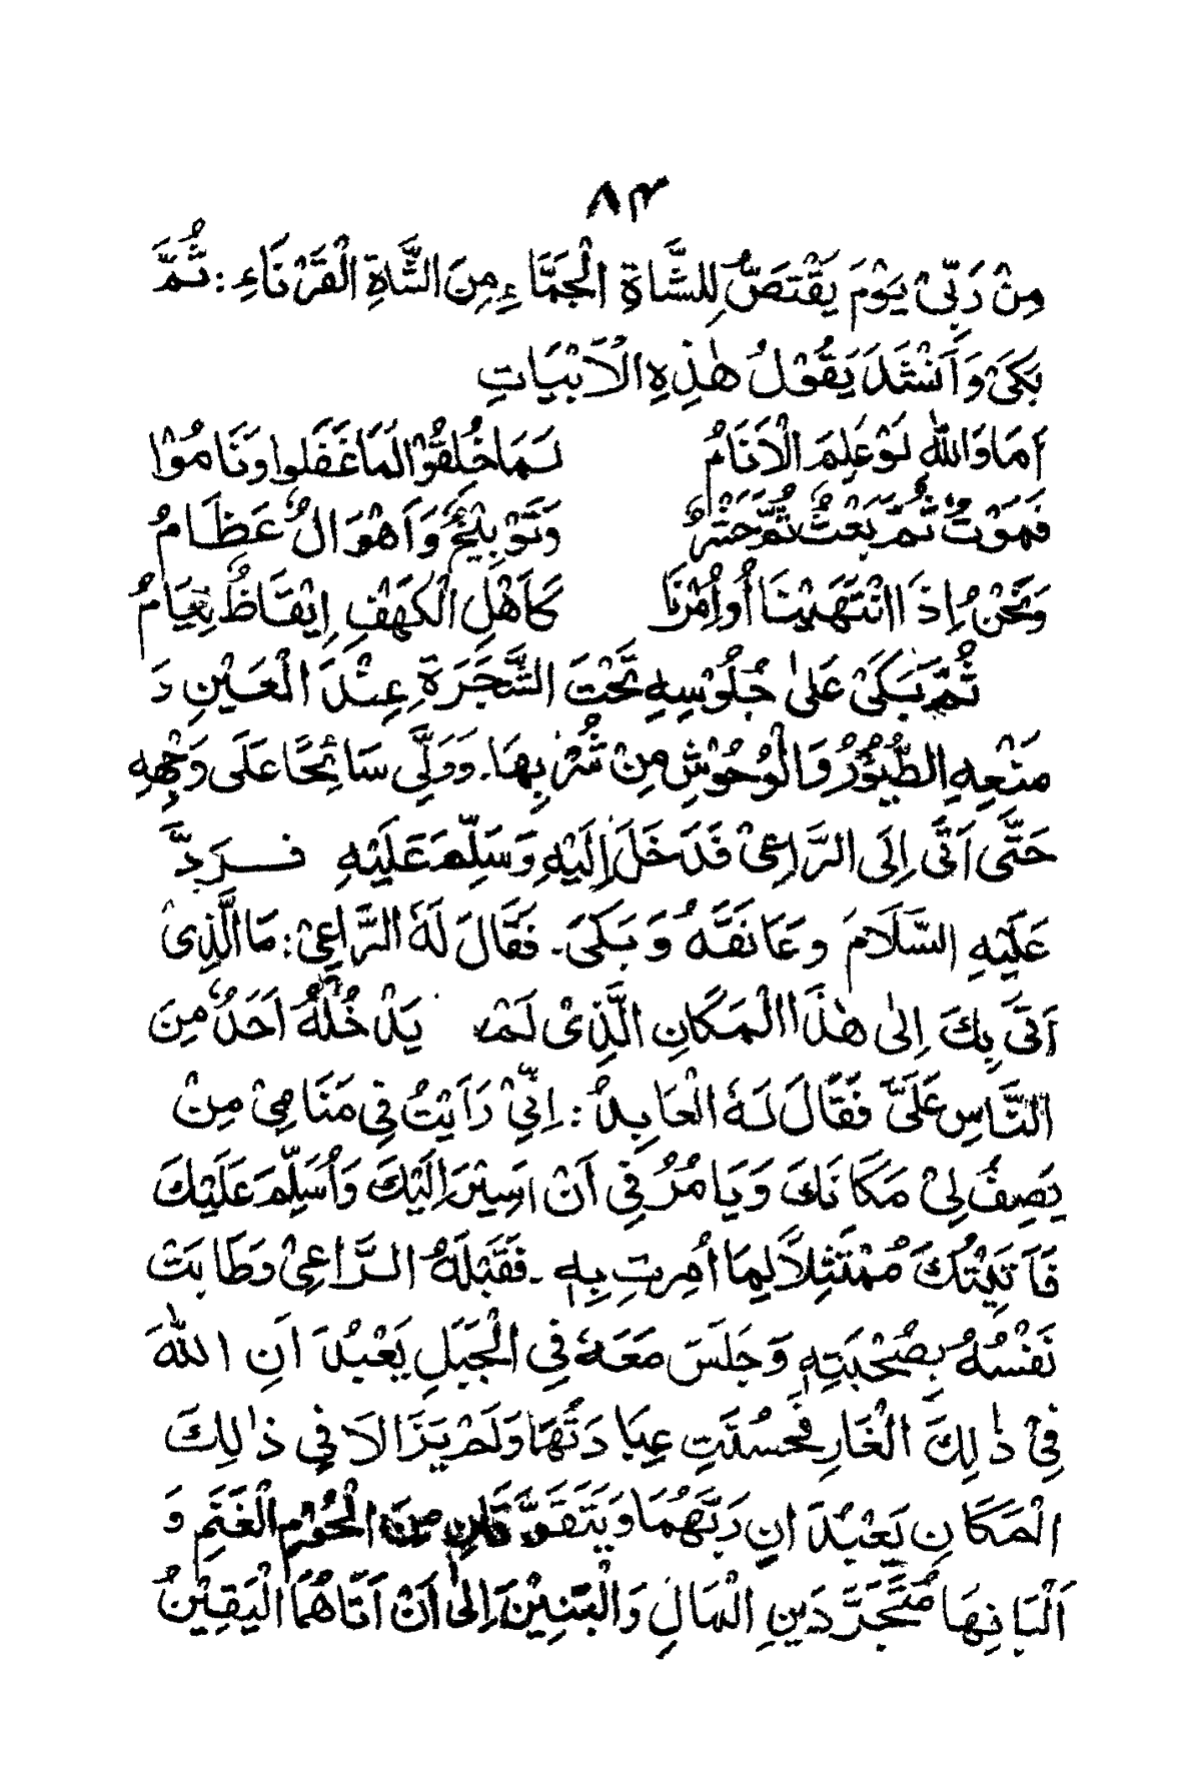 ٨٣
مِنْ رَبِّىْ يَوْمَ يَقْتَصُّ لِلشَّاةِ الْجَمَّاءِ مِنَ الشَّاةِ الْقَرْنَاءِ: ثُمَّ
بَكَىْ وَاَنْشَدَ يَقُوْلُ هٰذِهِ الْاَبْيَاتِ
اَمَا وَاللّٰهِ لَوْ عَلِمَ الْاَنَامُ لَمَا خُلِقُوْا لَمَا غَفَلُوا وَنَامُوْا
فَمَوْتٌ ثُمَّ بَعْثٌ ثُمَّ حَشْرٌ وَتَوْبِيْخٌ وَاَهْوَالٌ عَظَامُ
وَنَحْنُ اِذَا انْتَهَيْنَا أُو اُمِرْنَا كَاَهْلِ الْكَهْفِ اِيْقَاظٌ نِيَامُ
ثُمَّ بَكَىْ عَلىٰ جُلُوْسِهِ تَحْتَ الشَّجَرَةِ عِنْدَ الْعَيْنِ وَ
مَنْعِهِ الطُّيُوْرُ وَالْوُحُوْشِ مِنْ شُرْبِهَا۔ وَوَلَّى سَائِحًا عَلَى وَجْهِهِ
حَتَّى اَتَى اِلَى الرَّاعِىْ فَدَخَلَ اِلَيْهِ وَسَلَّمَ عَلَيْهِ فَرَدَّ
عَلَيْهِ السَّلَامَ وَعَانَقَهُ وَبَكىَ۔ فَقَالَ لَهُ الرَّاعِىْ: مَا الَّذِىْ
اَتَى بِكَ اِلىٰ هٰذَا الْمَكَانِ الَّذِىْ لَمْ يَدْخُلْهُ اَحَدٌ مِنَ
النَّاسِ عَلَىَّ فَقَالَ لَهُ الْعَابِدُ: اِنِّىْ رَاَيْتُ فِى مَنَامِىْ مِنْ
يَصِفُ لِىْ مَكَانَكَ وَيَامُرُنِى اَنْ اَسِيْرَ اِلَيْكَ وَاُسَلِّمَ عَلَيْكَ
فَاَتَيْتُكَ مُمْتَثِلاً لِمَا اُمِرتِ بِهٖ۔ فَقَبَّلَهُ الرَّاعِىْ وَطَابَتْ
نَفْسُهُ بِصُحْبَتِهٖ وَجَلَسَ مَعَهُ فِى الْجَبَلِ يَعْبُدَانِ اللّٰهَ
فِىْ ذٰلِكَ الْغَارِ فَحَسُنَتِ عِبَادَتُهَا وَلَمْ يَزَالَا فِى ذٰلِكَ
الْمَكَانِ يَعْبُدَانِ رَبَّهُمَا وَيَتَقَوَّتَانِ مِنَ الْحُوْمِ الْغَنَمِ وَ
اَلْبَانِهَا مُتَجَرَّدَيْنِ الْمَالِ وَالْبَنِيْنَ اِلىٰ اَنْ اَتَاهُمَا الْيَقِيْنُ